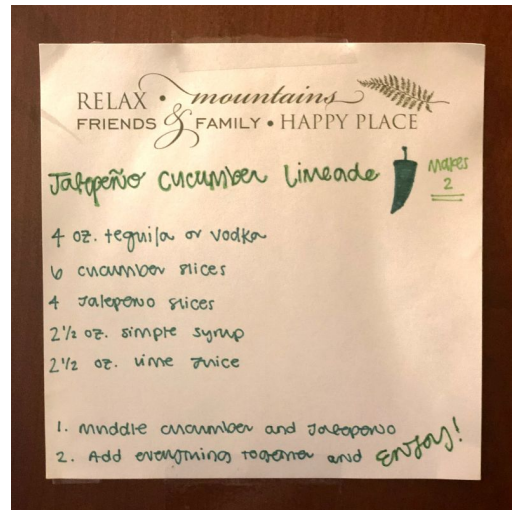 RELAX • mountains
FRIENDS & FAMILY • HAPPY PLACE
Jalapeño Cucumber Limeade
Makes
2
4 oz. tequila or vodka
6 cucumber slices
4 Jalepeno slices
2 1/2 oz. simple syrup
2 1/2 oz. lime juice
1. Muddle cucumber and Jalepeno
2. Add everything together and Enjoy!